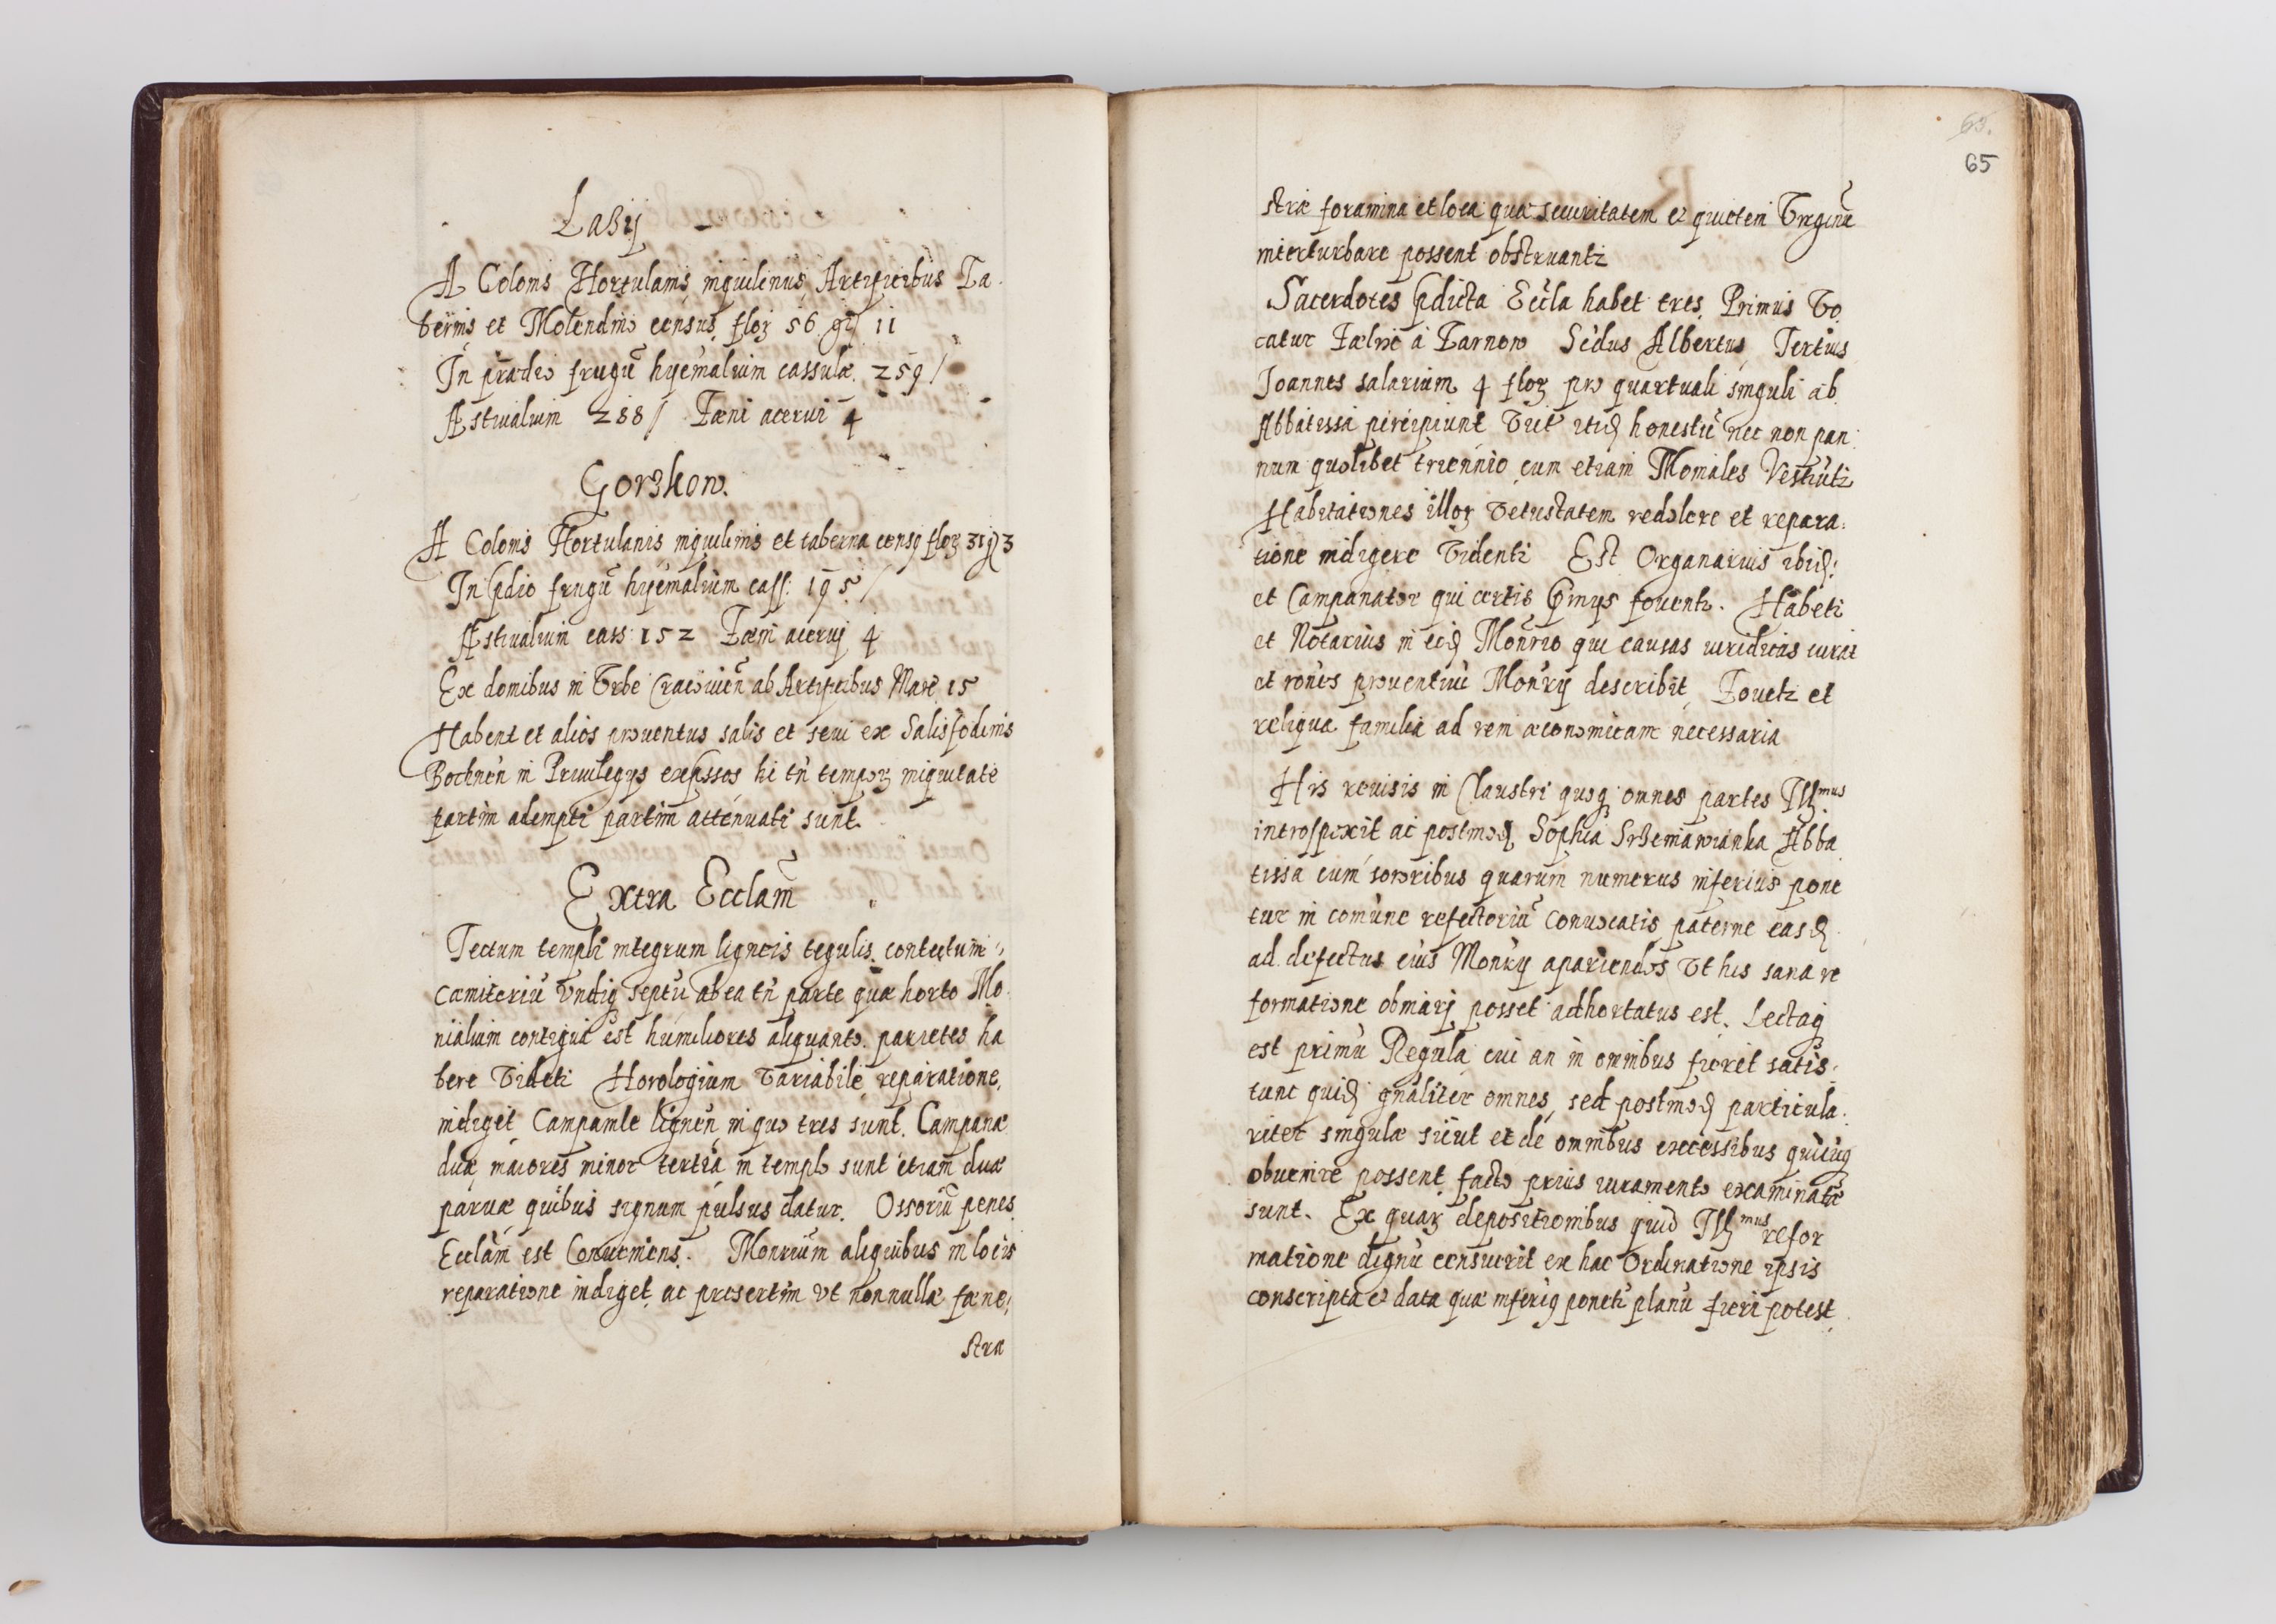 Laßij
A Colonis Hortulanis inquilinis Artificibus Ta
bernis et Molendino census floꝝ 56 gr 11
In prædio frugū hyemalium cassulæ 259 /
Æstivalium 288 / Fæni acervi 4
Gorzkow.
A Colonis Hortulanis inquilinis et taberna censꝫ floꝝ 31 g 3
In pdio frugū hyemalium cass: 195 /
Æstivalium cass: 152 Fæni acervi 4
Ex domibus in Vrbe Cracovień ab Artificibus Marc 15
Habent et alios proventus salis et sevi ex Salisfodinis
Bochneń in Privilegijs expssos hi tń tempoꝝ iniquitate
partim adempti partim attenuati sunt
Extra Ecclam̃
Tectum templi integrum ligneis tegulis contectum
Cæmiteriū vndiqꝫ septū ab ea tń parte quæ horto Mo
nialium contigua est humiliores aliquanto parietes ha
bere videti Horologium variabile reparatione
indiget Campanile ligneū in quo tres sunt Campanæ
duæ maiores minor tertia in templo sunt etiam duæ
parvæ quibus signum pulsus datur. Ossoriū penes
Ecclam̃ est Conveniens. Monrium aliquibus in locis
reparatione indiget ac presertim vt nonnullæ fæne
stra
65
stræ foramina et loca quæ securitatem et quietem Virginū
interturbare possent obstruantꝫ
Sacerdotes pdicta Eccla habet tres Primus Vo
catur Fælix à Tarnow Scdus Albertus Tertius
Joannes salarium 4 floꝝ pro quartuali singuli ab
Abbatissa percipiunt Victū itidꝫ honestū nec non pan
num quolibet triennio cum etiam Moniales Vestiutꝫ
Habitationes illoꝝ vetustatem redolere et repara
tione indigere videntꝫ Est Organarius ibidꝫ
et Campanator qui certis pmijs foventꝫ. Habetꝫ
et Notarius in eodꝫ Monrio qui causas iuridicas curat
et rońes proventuū Monrij describit Fovetꝫ et
reliqua familia ad rem œconomicam necessaria
His revisis in Claustri quoqꝫ omnes partes Illmus
introspexit ac postmodꝫ Sophia Srzemawianka Abba
tissa cum sororibus quarum numerus inferius pone
tur in comune refectoriū convocatis paterne easdꝫ
ad defectus eius Monrij apariendos Vt his sana re
formatione obviarj posset adhortatus est. Lectaqꝫ
est primū Regula cui an in omnibus fieret satis
tunc quidꝫ gńaliter omnes sed postmodꝫ particula
riter singulæ sicut et de omnibus excessibus quicūqꝫ
obvenire possent facto prius iuramento examinatæ
sunt. Ex quaꝝ depositionibus quid Illmus refor
matione dignū censuerit ex hac Ordinatione ipsis
conscripta et data quæ inferiꝫ ponetꝫ planū fieri potest